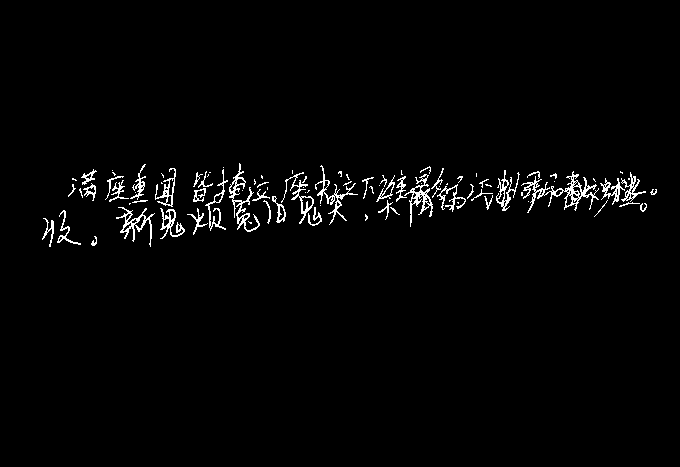 满座重闻皆掩泣。座中泣下谁最多江州司马青衫湿。
收。新鬼烦冤旧鬼哭,天阴雨湿声啾啾。